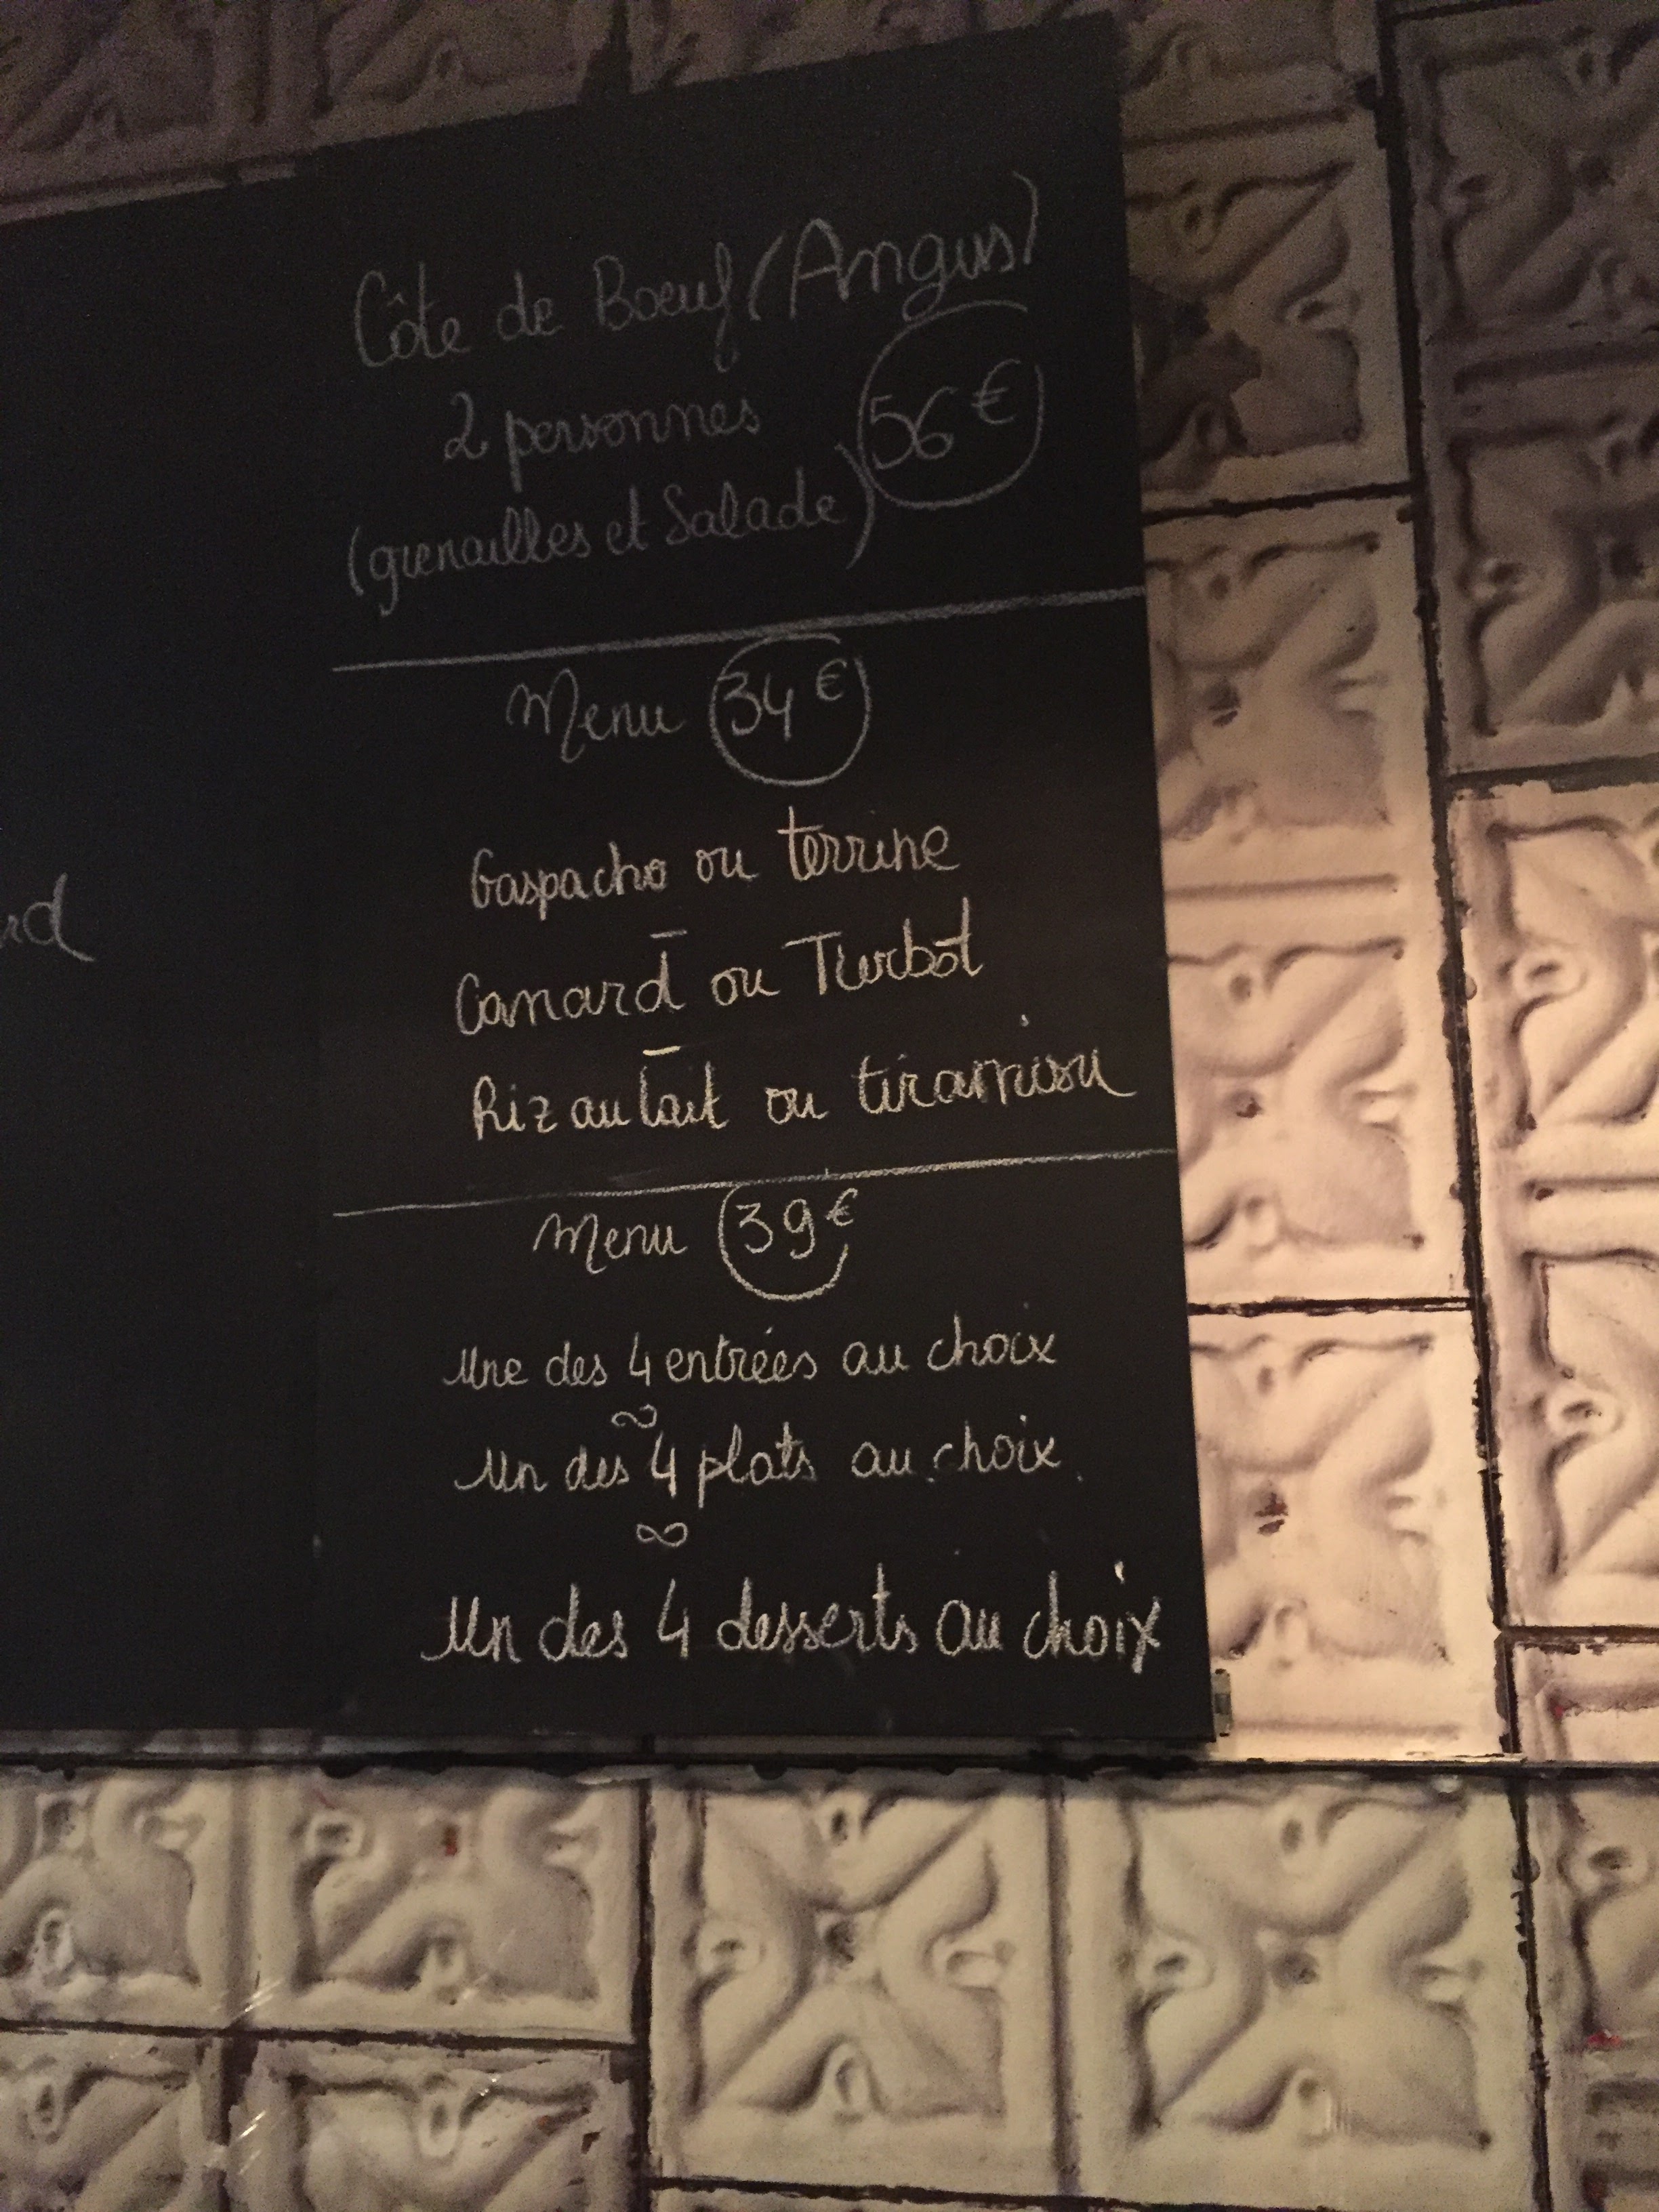 Côte de Boeuf (Angus)
2 personnes 56€
(grenailles et Salade)
Menu 34€
Gaspacho ou terrine
–
Canard ou Turbot
–
Riz au lait ou tiramisu
Menu 39€
Une des 4 entrées au choix
∞
Un des 4 plats au choix
∞
Un des 4 desserts au choix